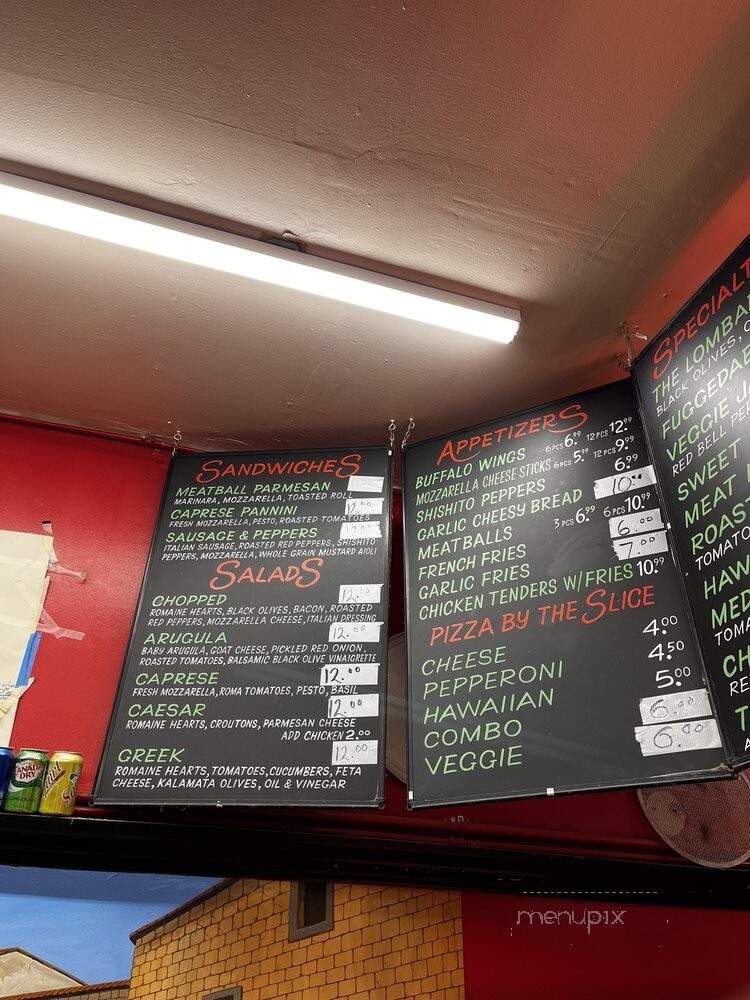 SANDWICHES
MEATBALL PARMESAN
MARINARA, MOZZARELLA, TOASTED ROLL
CAPRESE PANNINI
FRESH MOZZARELLA, PESTO, ROASTED TOMATOES
SAUSAGE & PEPPERS
ITALIAN SAUSAGE, ROASTED RED PEPPERS, SHISHITO
PEPPERS, MOZZARELLA, WHOLE GRAIN MUSTARD AIOLI
SALADS
CHOPPED 12.00
ROMAINE HEARTS, BLACK OLIVES, BACON, ROASTED
RED PEPPERS, MOZZARELLA CHEESE, ITALIAN DRESSING
ARUGULA 12.00
BABY ARUGULA, GOAT CHEESE, PICKLED RED ONION,
ROASTED TOMATOES, BALSAMIC BLACK OLIVE VINAIGRETTE
CAPRESE 12.00
FRESH MOZZARELLA, ROMA TOMATOES, PESTO, BASIL
CAESAR 12.00
ROMAINE HEARTS, CROUTONS, PARMESAN CHEESE
ADD CHICKEN 2.00
GREEK 12.00
ROMAINE HEARTS, TOMATOES, CUCUMBERS, FETA
CHEESE, KALAMATA OLIVES, OIL & VINEGAR
APPETIZERS
BUFFALO WINGS 6PCS 6.99 12PCS 12.99
MOZZARELLA CHEESE STICKS 6PCS 5.99 12PCS 9.99
SHISHITO PEPPERS 6.99
GARLIC CHEESY BREAD 10.00
MEATBALLS 3PCS 6.99 6PCS 10.99
FRENCH FRIES 6.00
GARLIC FRIES 7.00
CHICKEN TENDERS W/FRIES 10.99
PIZZA BY THE SLICE
CHEESE 4.00
PEPPERONI 4.50
HAWAIIAN 5.00
COMBO 6.00
VEGGIE 6.00
SPECIALT
THE LOMBA
BLACK OLIVES,
FUGGEDAB
VEGGIE
RED BELL PE
SWEET
MEAT
ROAS
TOMATO
HAW
MED
TOMA
CH
RE
T
CANADA
DRY
menupix